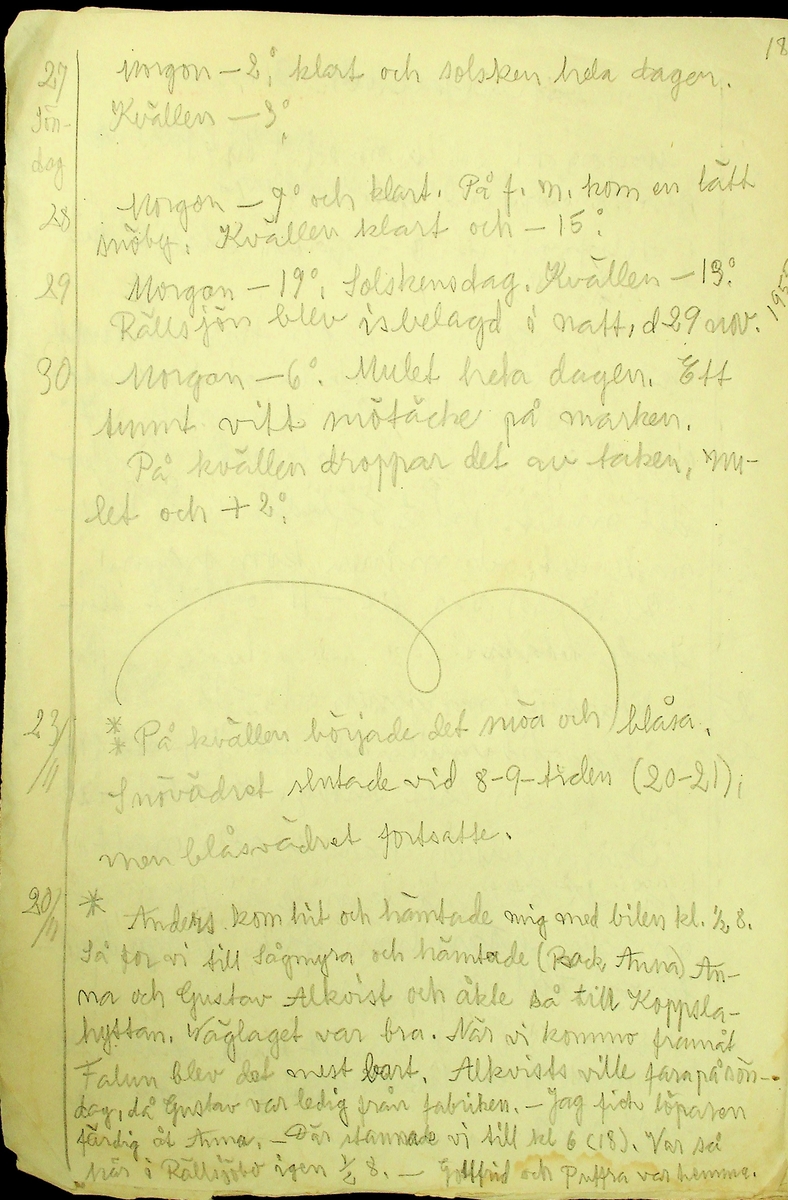 18
27 Morgon -2°, klart och solsken hela dagen.
Sön- Kvällen -3°.
dag
28 Morgon -9° och klart. På f. m. kom en lätt
snöby. Kvällen klart och -15°.
29 Morgon -19°, Solskensdag. Kvällen -13°.
Rällsjön blev isbelagd i natt, d 29 nov.
195
30 Morgon -6°. Mulet hela dagen. Ett
tunnt vitt snötäcke på marken.
På kvällen droppar det av taken, mu-
let och +2°.
23/11 ** På kvällen började det snöa och blåsa.
Snövädret slutade vid 8-9-tiden (20-21),
men blåsvädret fortsatte.
20/11 * Anders kom hit och hämtade mig med bilen kl. ½ 8.
Så for vi till Sågmyra och hämtade (Back Anna) An-
na och Gustav Alkvist och åkte så till Koppsla-
hyttan. Väglaget var bra. När vi kommo framåt
Falun blev det mest bart. Alkvists ville fara på sön-
dag, då Gustav var ledig från fabriken. - Jag fick löparen
färdig åt Anna. - Där stannade vi till kl 6 (18). Var så
här i Rällsjöbo igen ½ 8. - Gottfrid och Puffra var hemma.